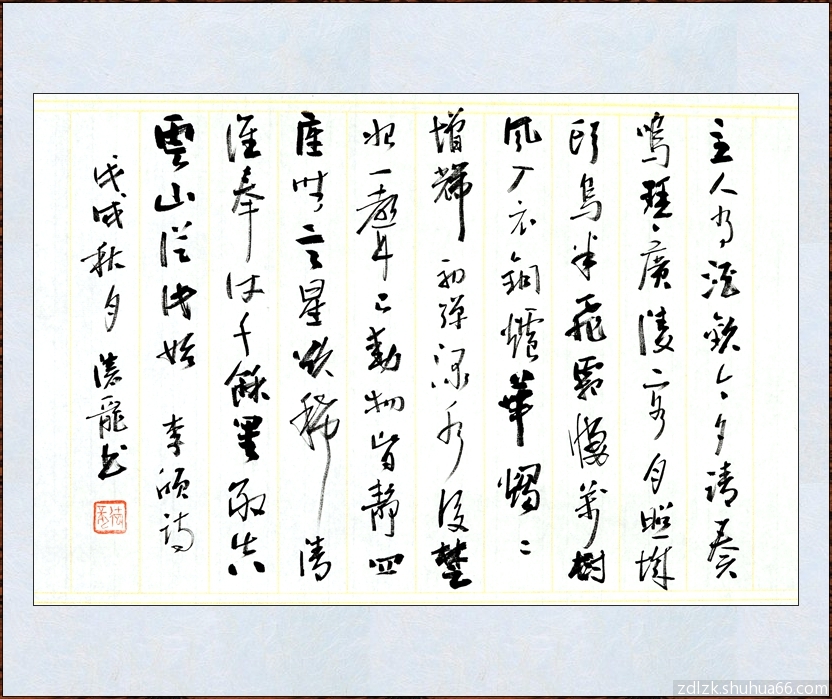 主人有酒歡今夕請奏
鳴琴廣陵客月照城
頭烏半飛霜淒萬樹
風入衣銅爐華燭〻
增輝初彈淥水後楚
妃一聲已動物皆靜四
座無言星欲稀清
淮奉使千餘里敢告
雲山從此始 李頎詩
戊戌秋月 德龍書
zdlzk.shuhua66.com